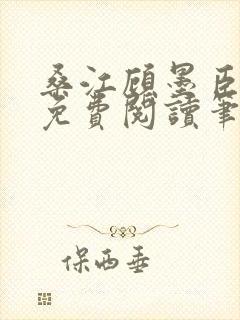 桑江顾墨臣
免費閱讀筆
保西垂